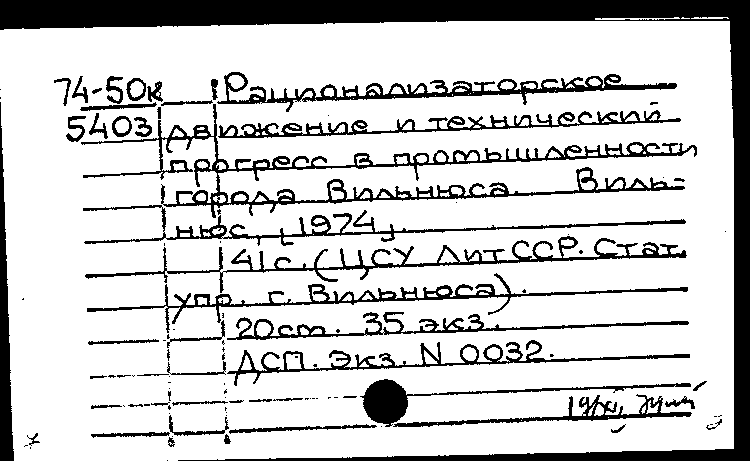 74-50к Рационализаторское
5403 движение и технический
прогресс в промышленности
города Вильнюса. Виль-
нюс, [1974]
41с. (ЦСУ ЛитССР. Стат.
упр. г. Вильнюса).
20см. 35 экз.
ДСП. Экз. N 0032.